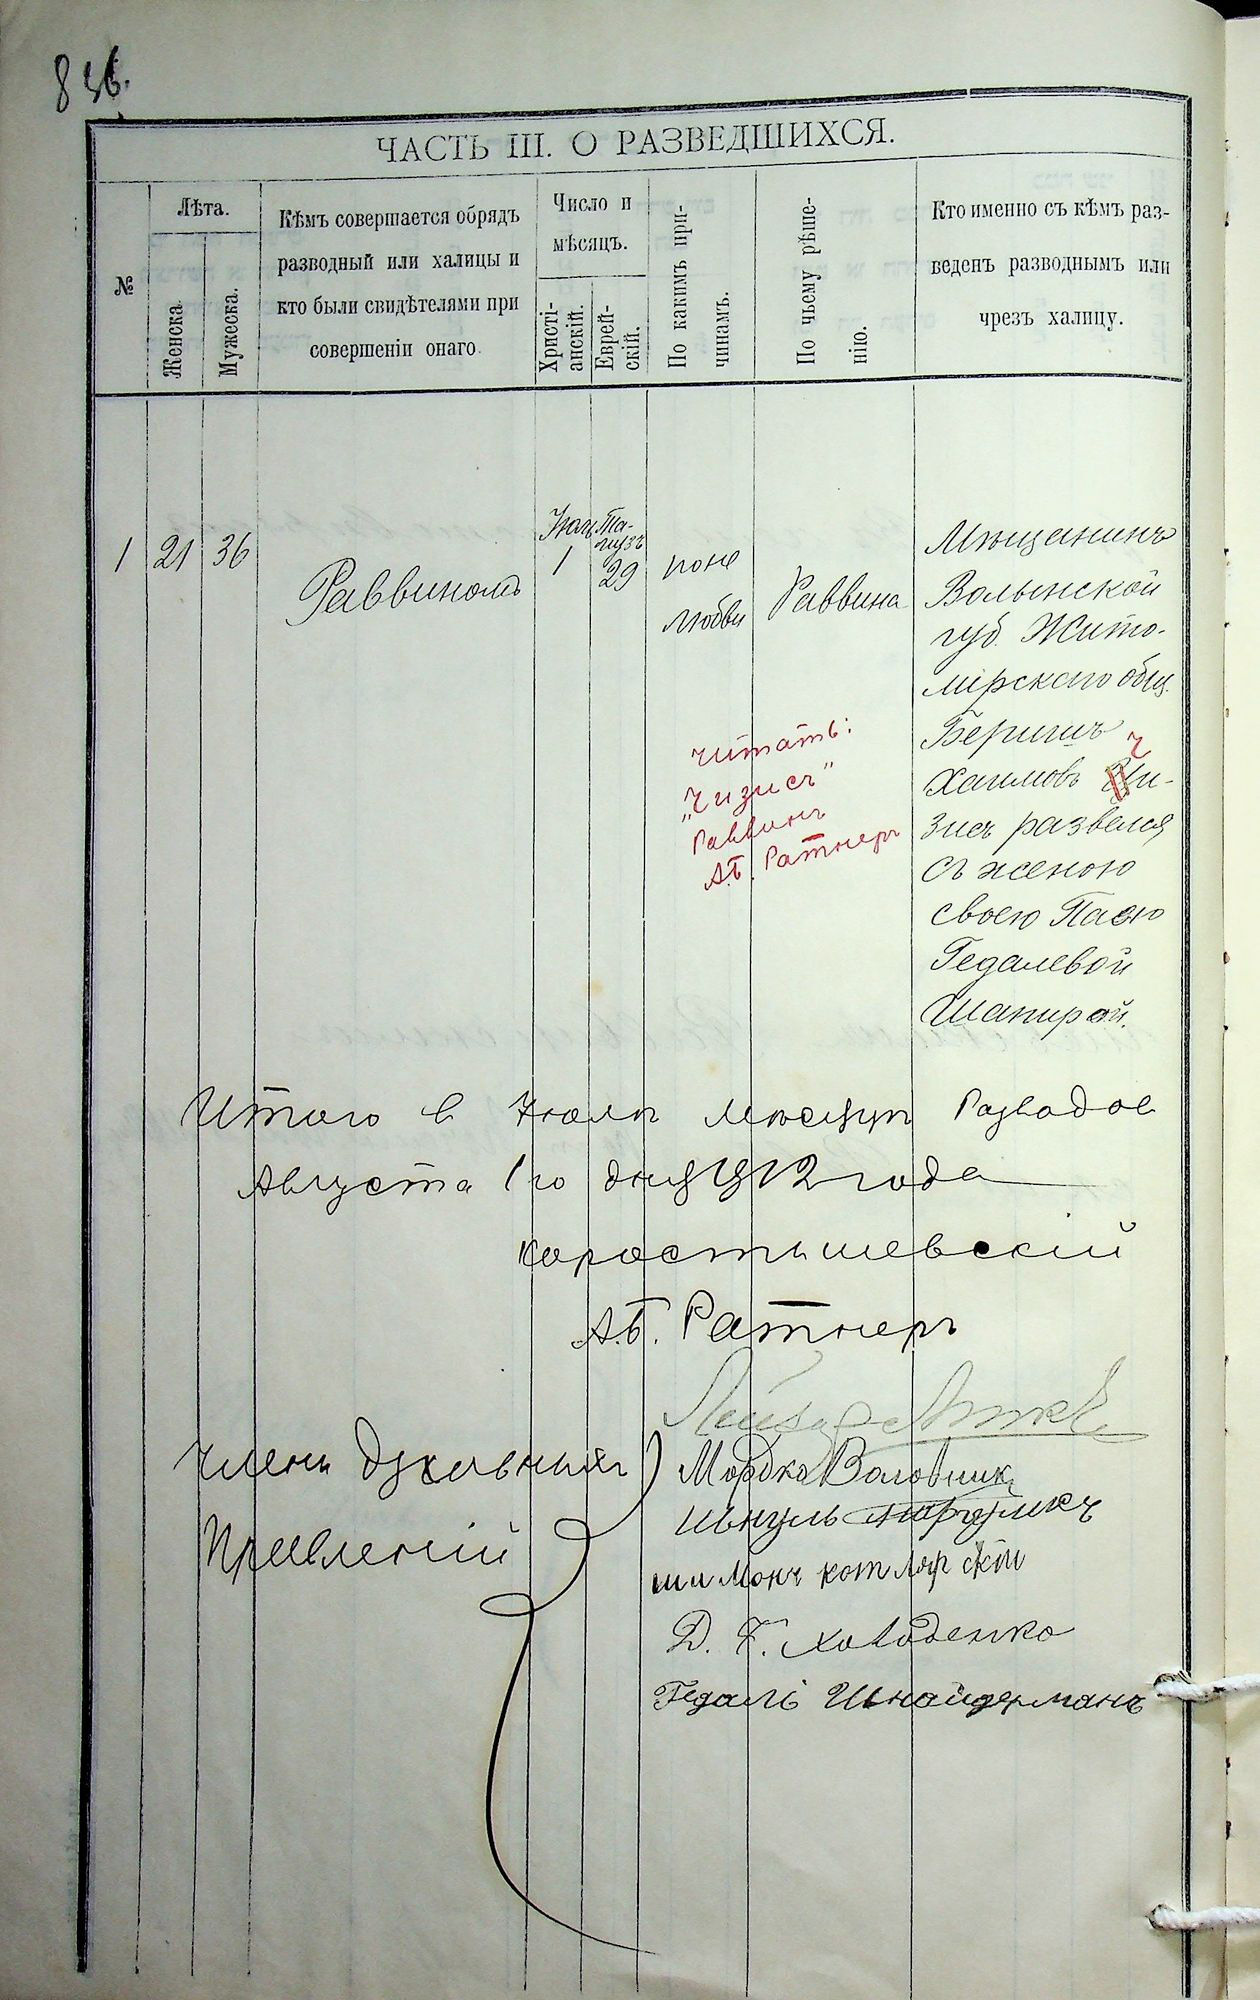 836.
ЧАСТЬ III. О РАЗВЕДШИХСЯ.
№
Лѣта.
Женска
Мужеска.
Кѣмъ совершается обрядъ
разводный или халицы и
кто были свидѣтелями при
совершеніи онаго.
Число и
мѣсяцъ.
Христі-
анскій.
Еврей-
скій.
По какимъ при-
чинамъ.
По чьему рѣше-
нію.
Кто именно съ кѣмъ раз-
веденъ разводнымъ или
чрезъ халицу.
1
21
36
Раввиномъ
1
Та-
музъ
29
по не
любви
Раввина
Мѣщанинъ
Волынской
губ. Жито-
мірскаго общ.
Беришъ
Хаимовъ Чи-
зисъ развелся
съ женою
своею Пасею
Гедалевой
Шапирой.
Читать:
„Чизисъ"
Раввинъ
А.Б. Ратнеръ
Итого в Июлѣ мѣсяцѣ Разводов
Августа 1го дня 1912 года
Коростышевскій
А.Б. Ратнеръ
Члены Духовныхъ
Правленій
Мордко Воловник
Шмуль
Шимонъ Котлярскій
Д. Г. Ховоденко
Гедалі Шнайдерманъ